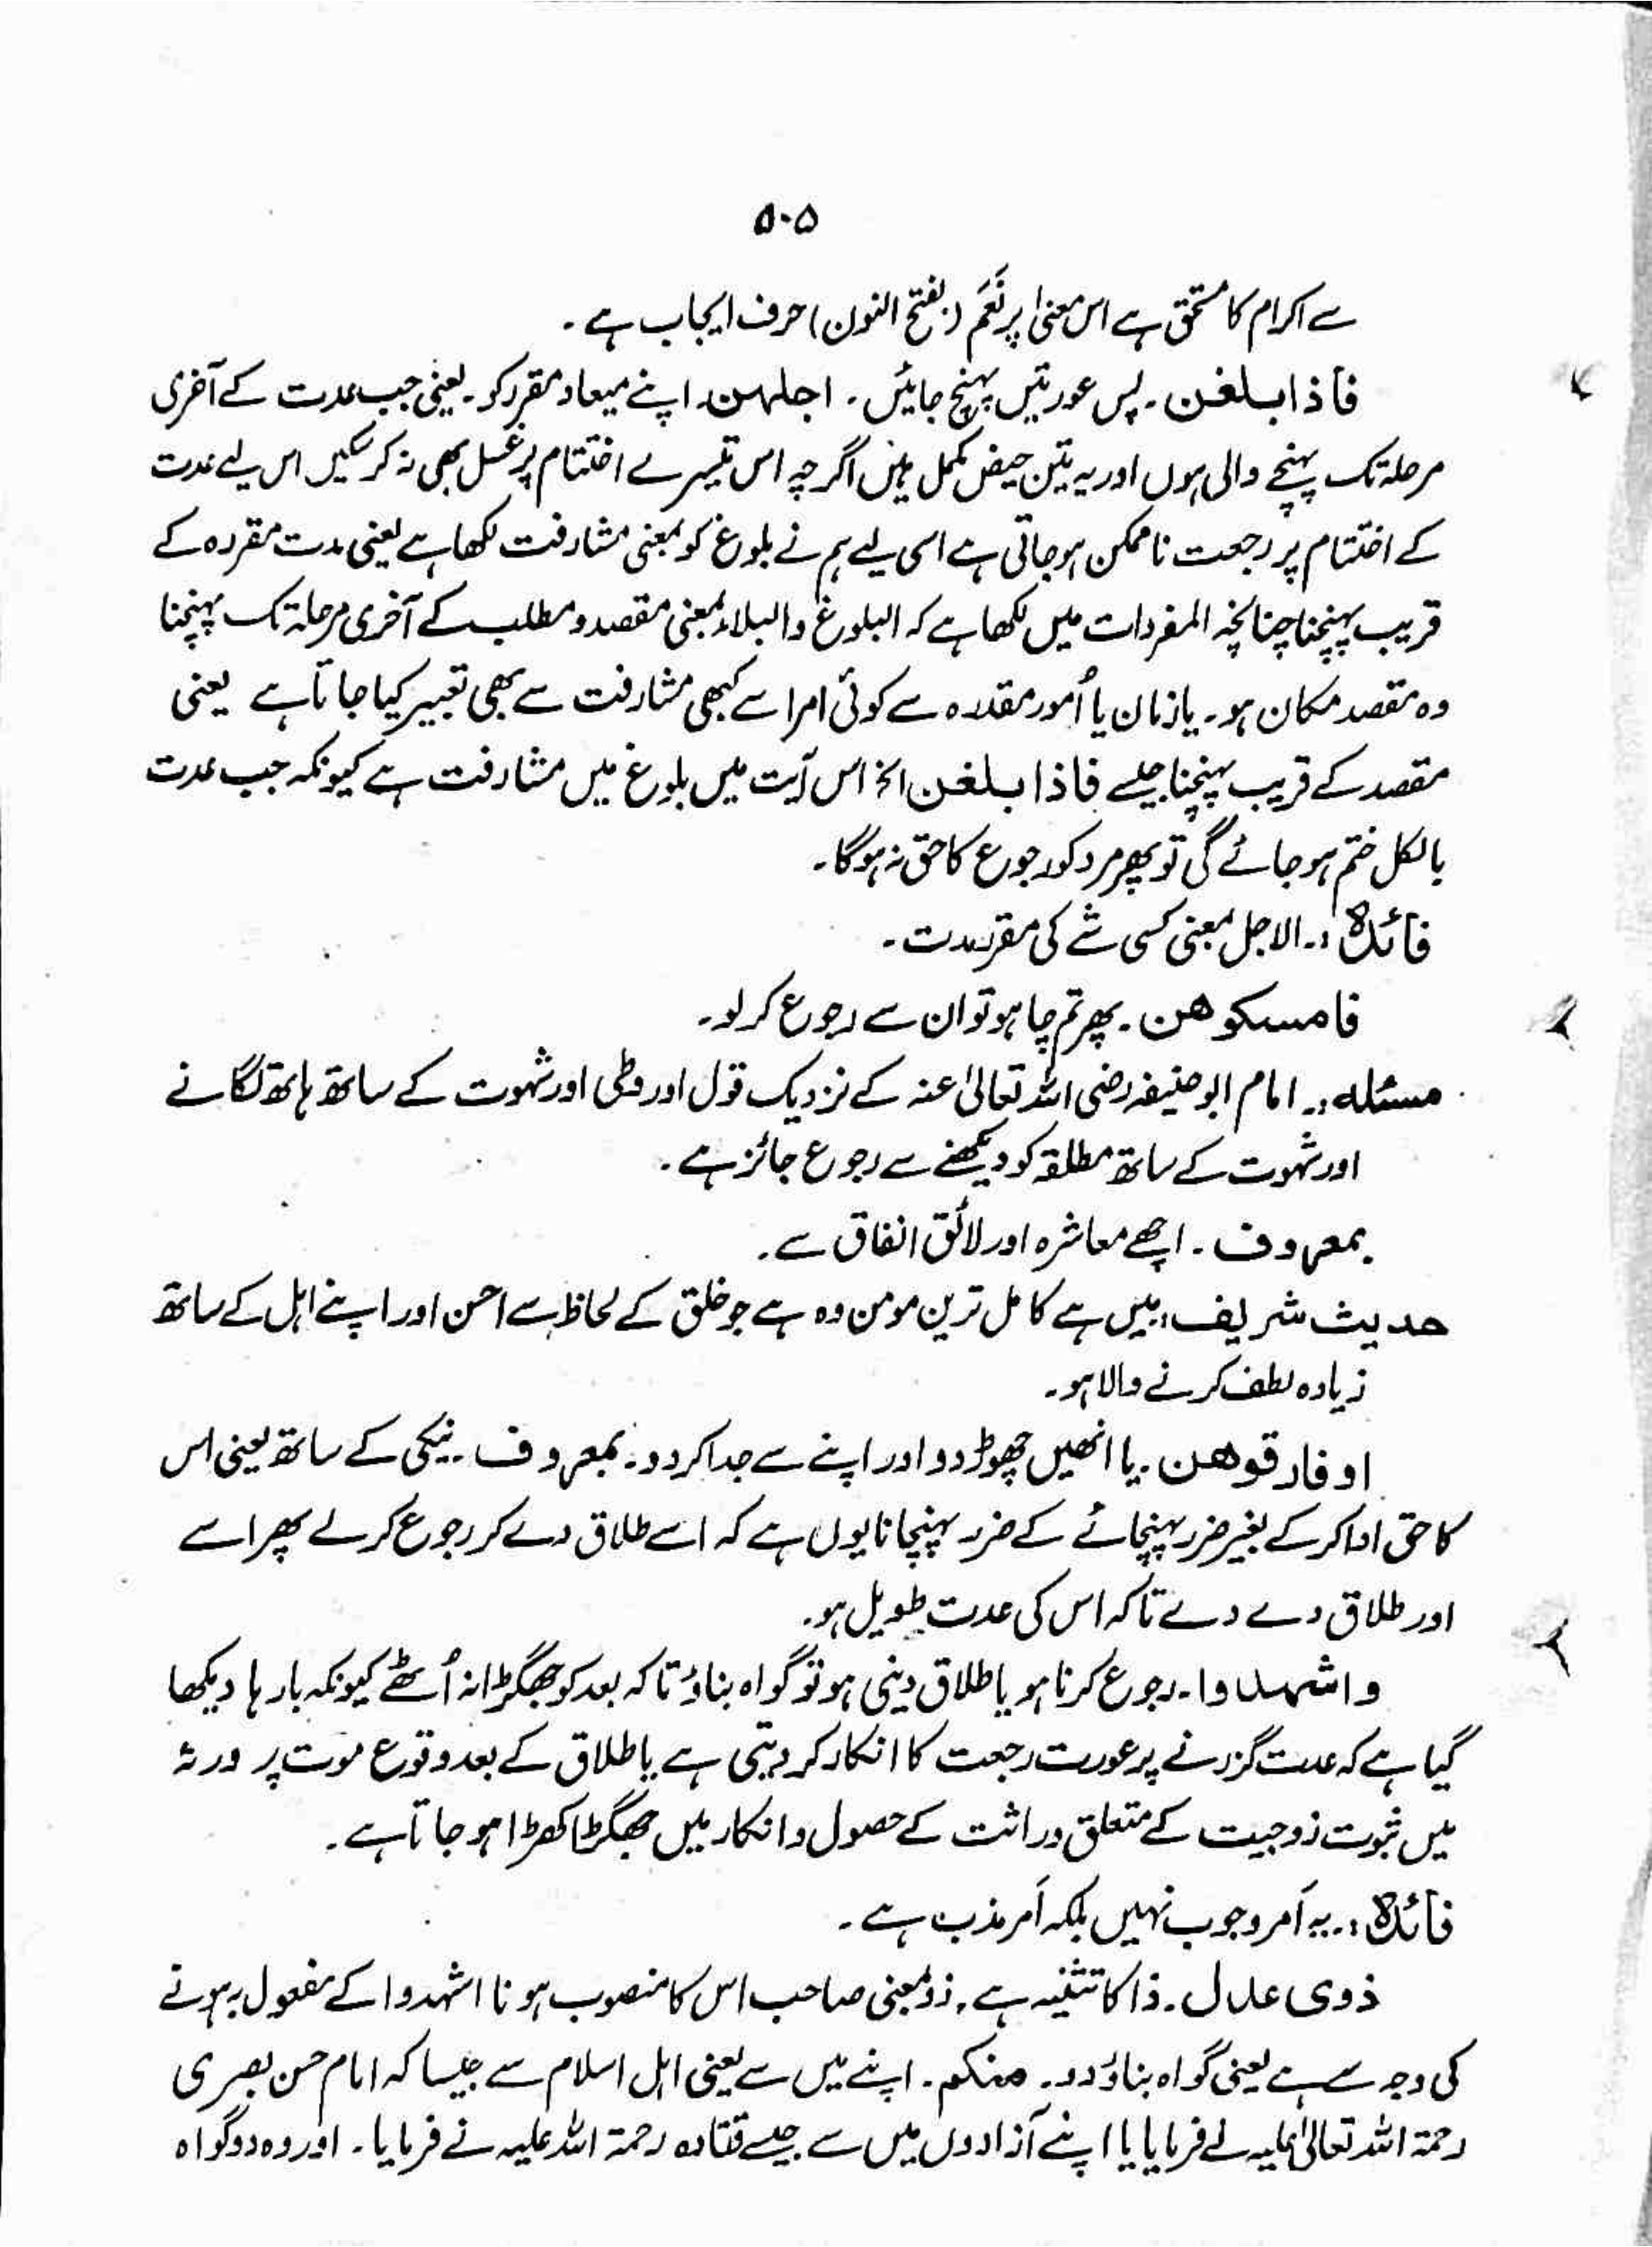 ۵۰۵
سے اکرام کا مستحق ہے اس معنیٰ پر نَعَم (بفتح النون) حرف ایجاب ہے ۔
فاذا بلغن ۔ پس عورتیں پہنچ جائیں ۔ اجلہن اپنے میعاد مقرر کو ۔ یعنی جب عدت کے آخری
مرحلہ تک پہنچے والی ہوں اور یہ تین حیض مکمل ہیں اگرچہ اس تیسرے اختتام پر غسل بھی نہ کر سکیں اس لیے عدت
کے اختتام پر رجعت ناممکن ہو جاتی ہے اسی لیے ہم نے بلوغ کو بمعنی مشارفت لکھا ہے یعنی مدت مقررہ کے
قریب پہنچنا چنانچہ المفردات میں لکھا ہے کہ البلوغ والبلاء بمعنی مقصد و مطلب کے آخری مرحلہ تک پہنچنا
وہ مقصد مکان ہو ۔ یا زمان یا اُمور مقدرہ سے کوئی امر اسے کبھی مشارفت سے بھی تعبیر کیا جاتا ہے یعنی
مقصد کے قریب پہنچنا جیسے فاذا بلغن الخ اس آیت میں بلوغ میں مشارفت ہے کیونکہ جب عدت
بالکل ختم ہو جائے گی تو پھر مرد کو رجوع کا حق نہ ہوگا ۔
فائدہ :۔ الاجل بمعنی کسی شے کی مقرر مدت ۔
فامسکوھن ۔ پھر تم چاہو تو ان سے رجوع کر لو ۔
مسئلہ :۔ امام ابوحنیفہ رضی اللہ تعالیٰ عنہ کے نزدیک قول اور وطی اور شہوت کے ساتھ ہاتھ لگانے
اور شہوت کے ساتھ مطلقہ کو دیکھنے سے رجوع جائز ہے ۔
بمعروف ۔ اچھے معاشرہ اور لائق انفاق سے ۔
حدیث شریف : میں ہے کامل ترین مومن وہ ہے جو خلق کے لحاظ سے احسن اور اپنے اہل کے ساتھ
زیادہ لطف کرنے والا ہو ۔
او فارقوھن ۔ یا انھیں چھوڑ دو اور اپنے سے جدا کر دو ۔ بمعروف ۔ نیکی کے ساتھ یعنی اس
کا حق ادا کر کے بغیر ضرر پہنچائے کے ضرر پہنچانا یوں ہے کہ اسے طلاق دے کر رجوع کر لے پھر اسے
اور طلاق دے دے تاکہ اس کی عدت طویل ہو ۔
واشھدوا ۔ رجوع کرنا ہو یا طلاق دینی ہو تو گواہ بناؤ تاکہ بعد کو جھگڑا نہ اُٹھے کیونکہ بارہا دیکھا
گیا ہے کہ عدت گزرنے پر عورت رجعت کا انکار کر دیتی ہے یا طلاق کے بعد وقوع موت پر ورثہ
میں ثبوت زوجیت کے متعلق وراثت کے حصول و انکار میں جھگڑا کھڑا ہو جاتا ہے ۔
فائدہ :۔ یہ اَمر وجوب نہیں بلکہ اَمر مذب ہے ۔
ذوی عدل ۔ ذا کا تثنیہ ہے ، ذو بمعنی صاحب اس کا منصوب ہونا اشہدوا کے مفعول بہ ہونے
کی وجہ سے ہے یعنی گواہ بناؤ دو ۔ منکم ۔ اپنے میں سے یعنی اہل اسلام سے جیسا کہ امام حسن بصری
رحمۃ اللہ تعالیٰ علیہ نے فرمایا یا اپنے آزادوں میں سے جیسے قتادہ رحمۃ اللہ علیہ نے فرمایا ۔ اور وہ دو گواہ